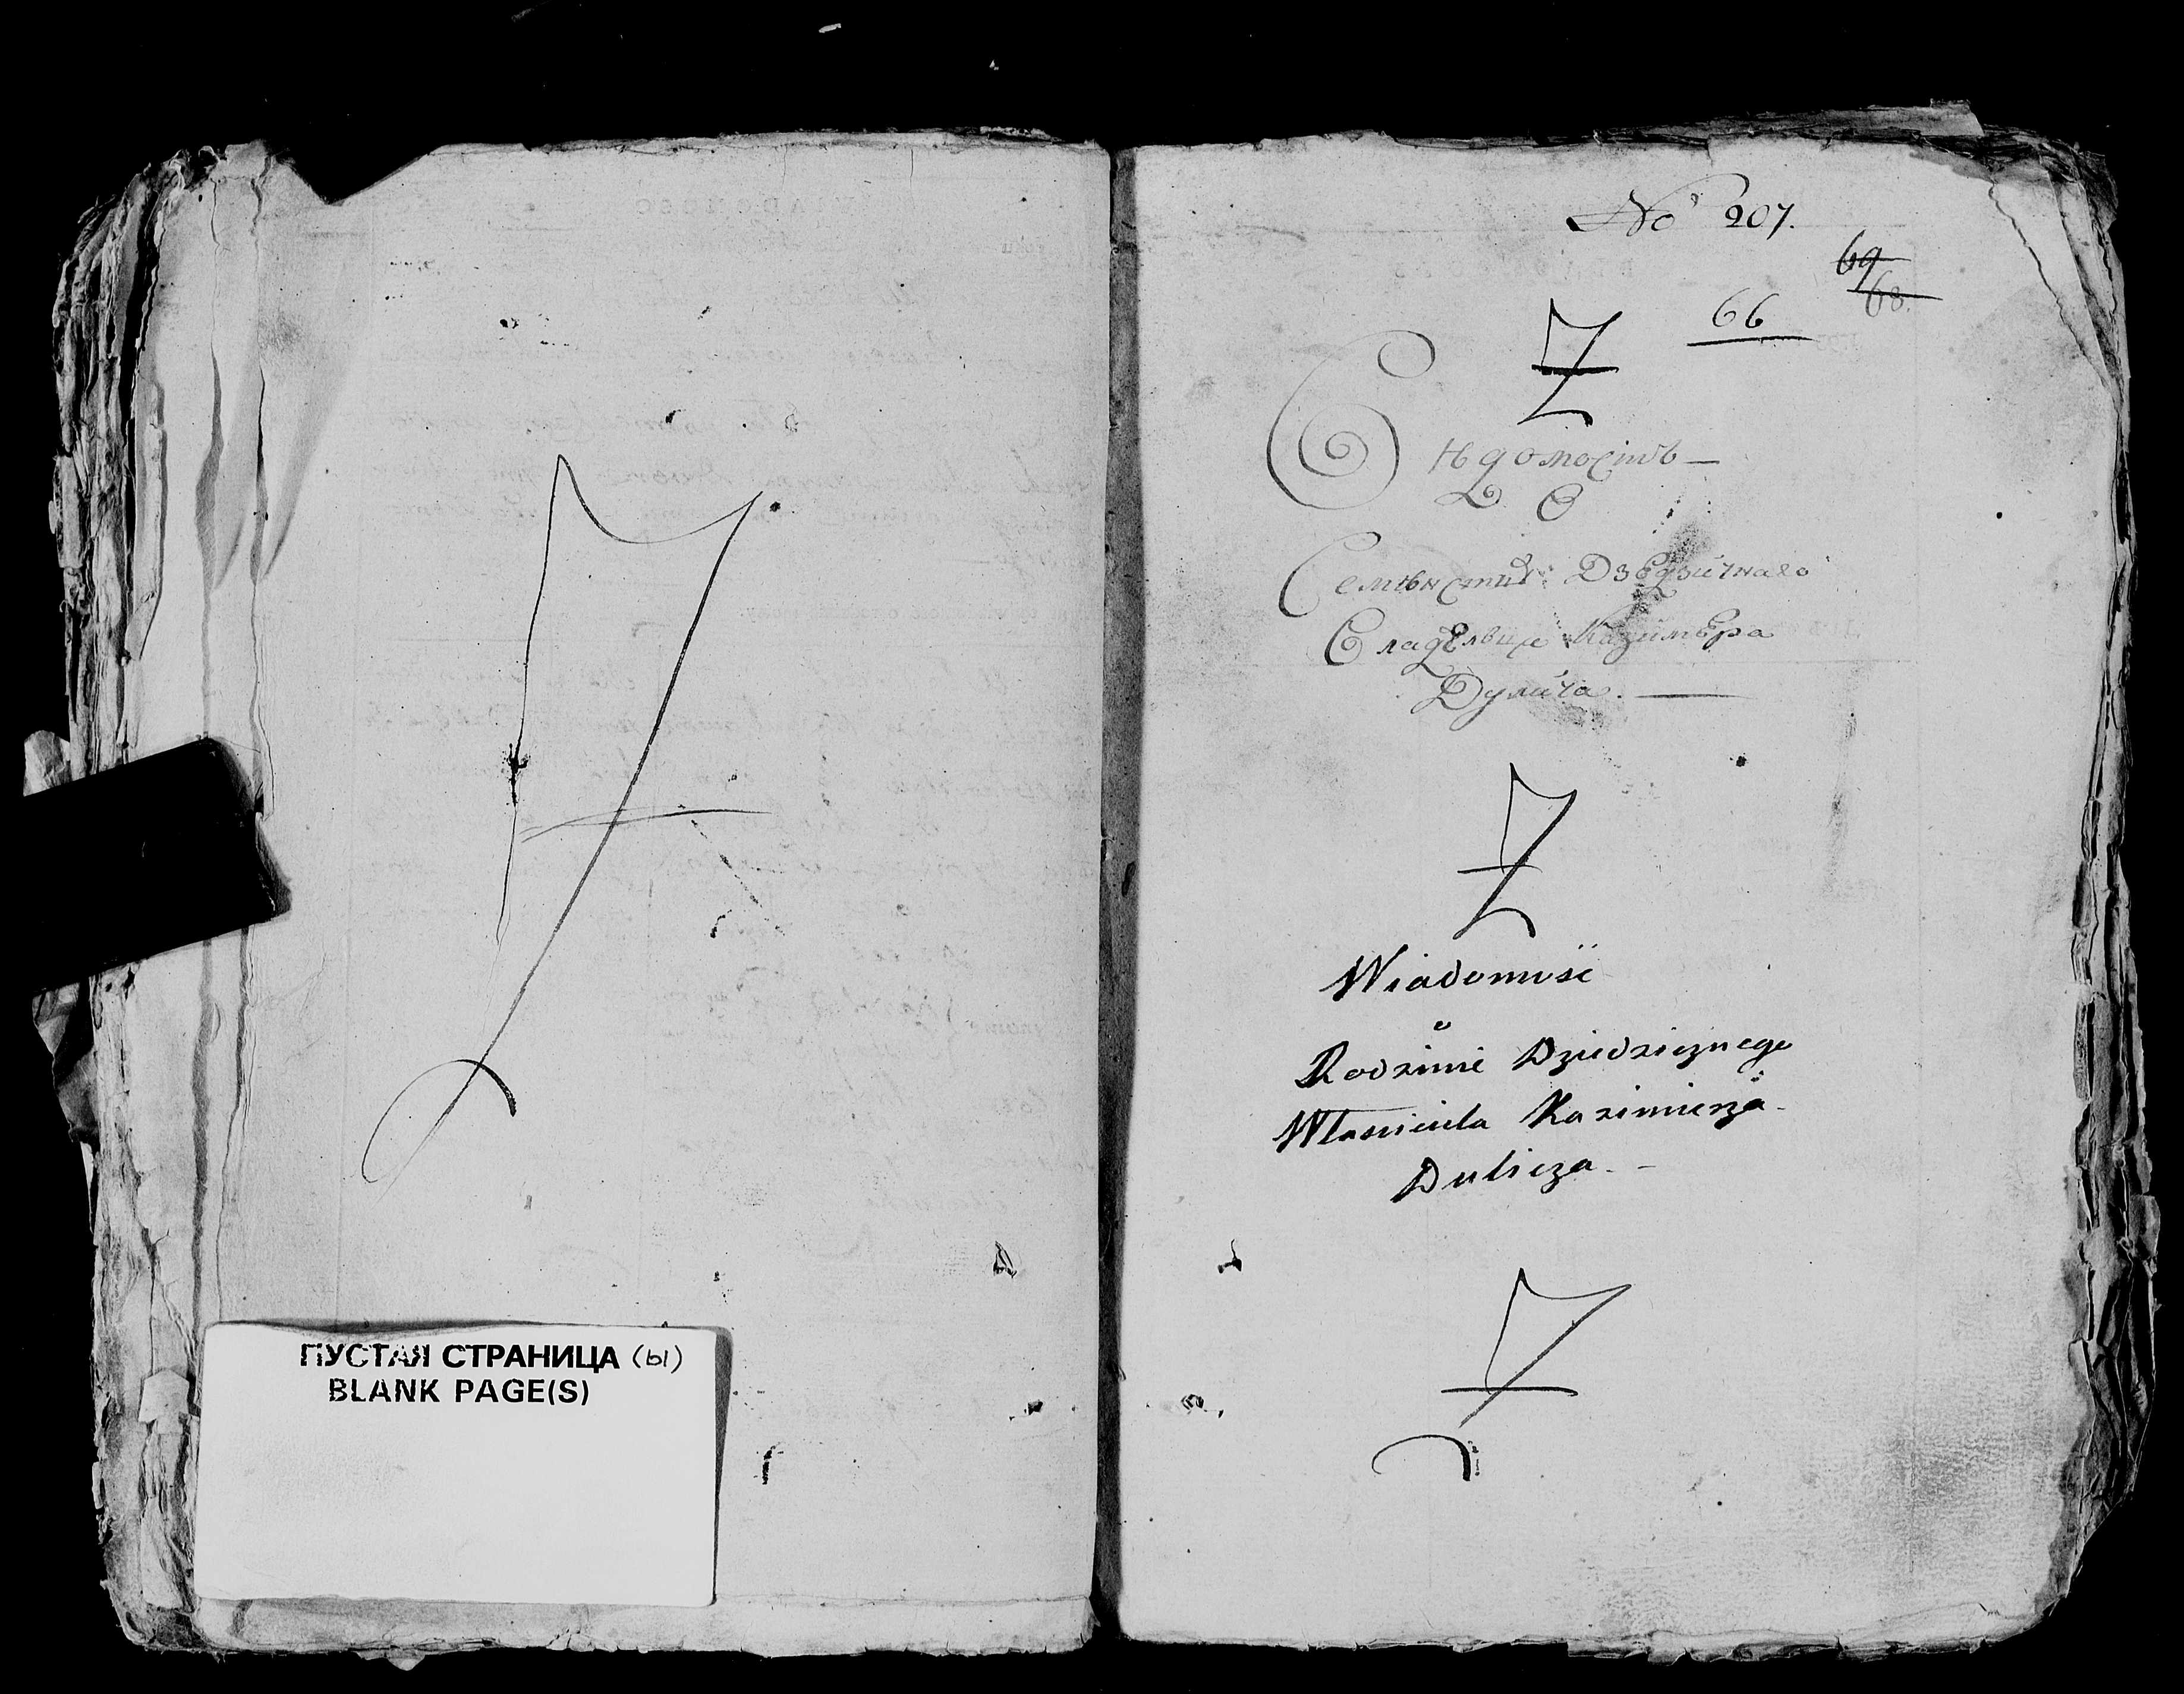 ПУСТАЯ СТРАНИЦА (ы)
BLANK PAGE(S)
No 207.
69
68.
66
Вѣдомость —
О
Семѣнствѣ Дзедзичнаго
Владѣльца Казимѣра
Дулича. —
Wiadomość
o
Rodzinie Dziedzicznego
Własciciela Kazimierza
Dulicza. —